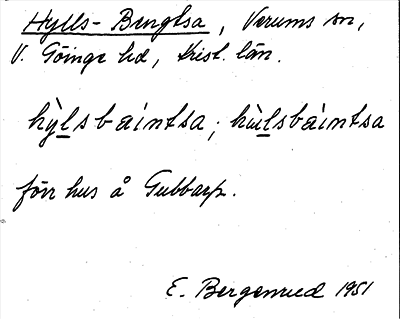 Hylls-Bengtsa, Verums sn,
V. Göinge hd, Krist. län.
hỳl̲sbáintsa; hùl̲sbàintsa
förr hus å Gubbarp.
E. Bergenrud 1951